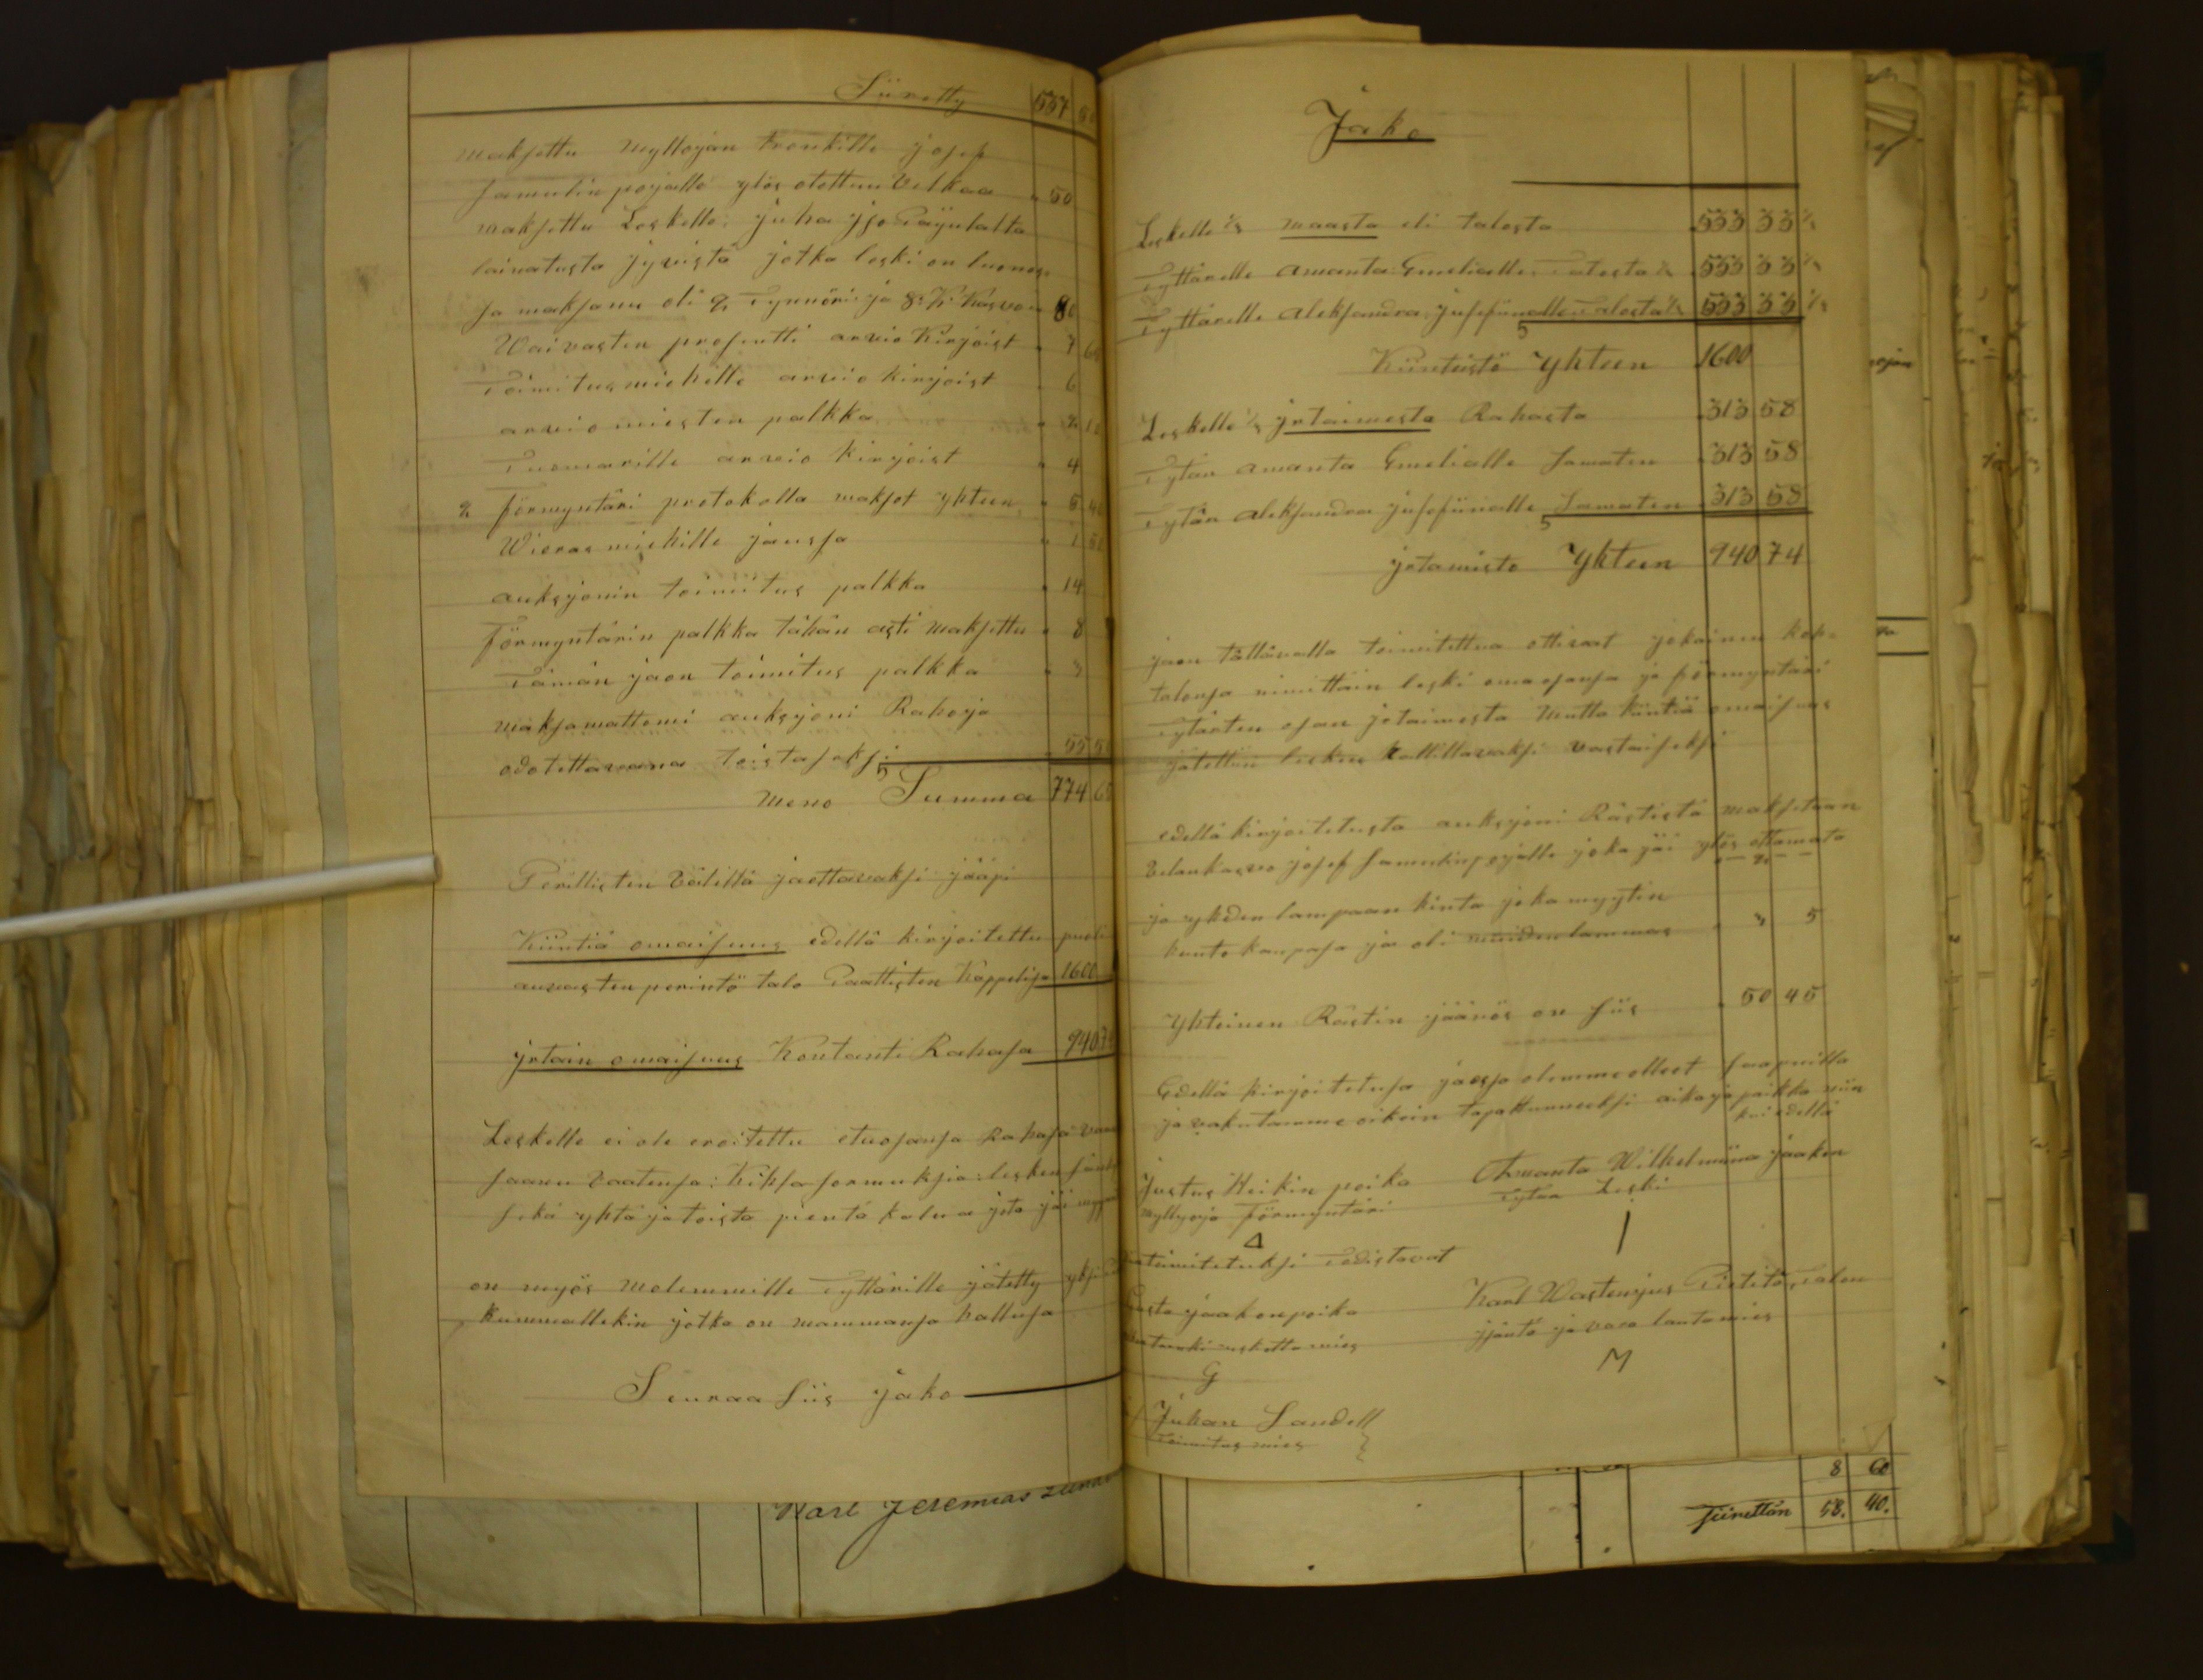 Siiretty 557 50
maksettu Myllojan trenkille josep
Samulin pojalle ylös otettuu Velkaa " 50
maksettu Leskelle: juha yso Päyulalta
lainatusta jyvistä jotka leski on luones-
sa maksanu oli 2 Tynnöri: ja 8: K: Kasvo " 80
Waivasten prosentti arvio Kirjoist " 7 60
Toimitus miehelle arvio kirjoist " 6
arvio miesten palkka " 2 10
Tuomarille arvio kirjoist " 4
2 förmyntäri protokolla maksot yhteen " 5 40
Wieras miehille jaussa " 1 50
auksjonin toimitus palkka " 14
Förmyntärin palkka tähän asti maksettu " 8
Tämän jaon toimitus palkka " 3
maksamattomi auksjoni Rahoja
odotettavana toistaseksi 55 50
Meno Summa 774 60
Perillisten Välillä jaettavaksi jääpi
Kiintiä omaisuus edellä kirjoitettu puoli
auvasten perintö talo Paattisten Kappelisa 1600
jrtain omaisuus Kontanti Rahasa 940 74
Leskelle ei ole eroitettu etuosansa Rahasa vaan
saanu Vaatensa: Kihla sormuksia: lesken
sekä yhtä ja toista pientä kalua jota jäi
on myös Molemmille Tyttärille jätetty yksi
Kummallekin jotka on mammansa hallusa
Seuraa siis jako
Karl Jeremias
Jako
Leskelle 1/3 maasta eli talosta 533 33 1/3
Tyttärelle Amanta Emelialle Talosta 1/3 533 33 1/3
Tyttärelle Aleksandra jusefiinalle Talosta 1/3 533 33 1/3
Kiintistö Yhteen 1600
Leskelle 1/3 jrtaimesta Rahasta 313 58
Tytän Amanta Emelialle Samaten 313 58
Tytän Aleksandra jusefiinalle Samaten 313 58
jrtamisto Yhteen 940 74
jaon tällävalla toimitettua ottivat jokainen koh-
talonsa nimittäin leski oma osansa ja förmyntäri
Tytärten osan jrtaimesta Mutta kiintiä omaisuus
jätettiin lesken hallittavaksi vastaiseksi
edellä kirjoitetusta auksjoni Rästistä maksetaan
Velankasvo josef Samulinpojalle joka jäi ylös ottamata " 2 "
ja yhden lampaan hinta joka myytin
huuto kaupasa ja oli muiden lammas " 3 5
Yhteinen Rästin jäänös on siis " 50 45
Edellä kirjoitetusa jaossa olemme olleet saapuilla
ja vakutamme oikein tapattunneeksi aika ja paikka niin
kui edellä
Justus Heikin poika Amanta Wilhelmiina jaakon
myllyoja Förmyntäri Tytär Leski
toimitetuksi Todistavat
jaakonpoika Karl Wastenijus Pietilä Talon
uskottu mies jsäntä ja vara lautamies
G M
Juhan Sandell
Toimitus mies
8 60
Siirettän 58. 40.